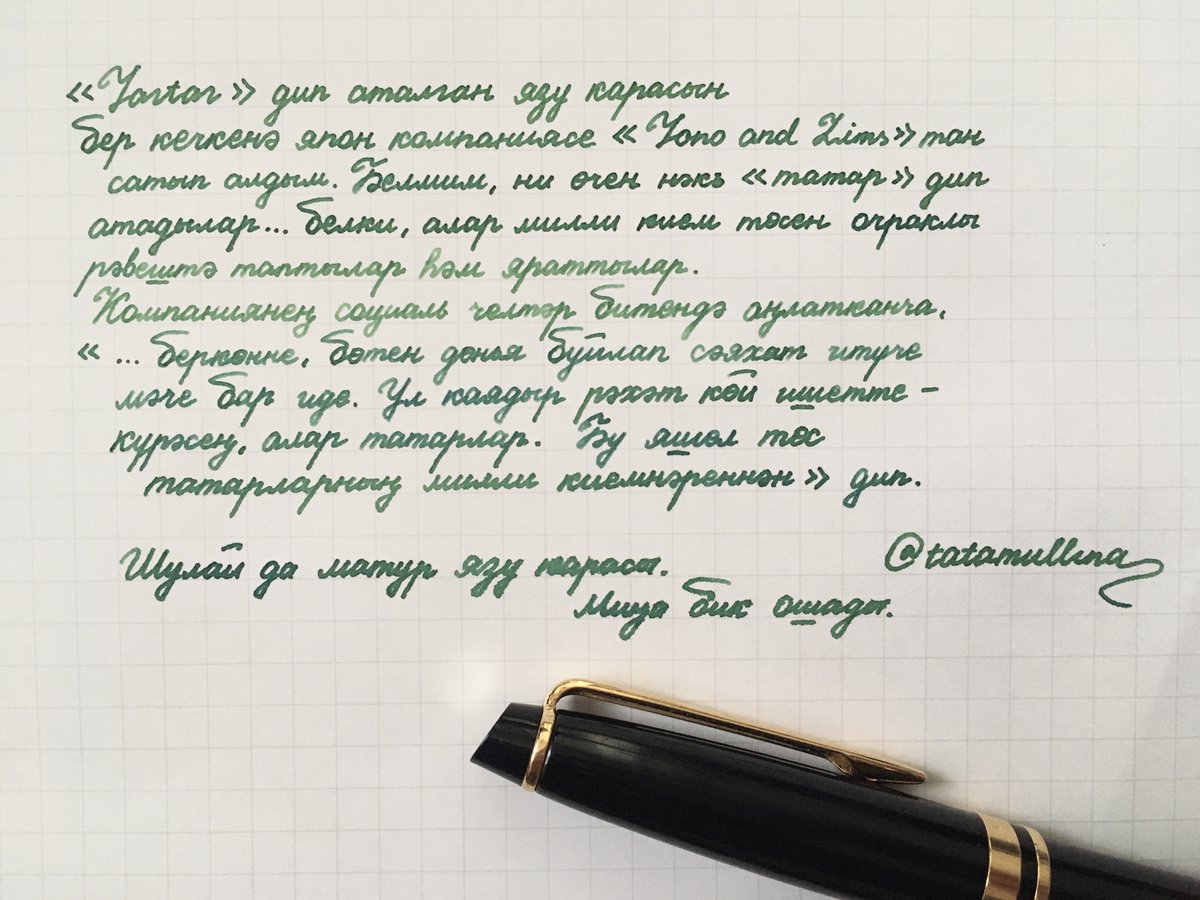 «Tartar» дип аталган язу карасын
бер кечкенә япон компаниясе «Tono and Lims» тан
сатып алдым. Белмим, ни өчен нәкъ «татар» дип
атадылар... белки, алар милли кием төсен очраклы
рәвештә таптылар һәм яраттылар.
Компаниянең социаль челтәр битендә аңлатканча,
« ... беркөнне, бөтен дөнья буйлап сәяхәт итүче
мәче бар иде. Ул каядыр рәхәт көй ишетте -
күрәсең, алар татарлар. Бу яшел төс
татарларның милли киемнәреннән» дип.
Шулай да матур язу карасы.
@tatamullina
Миңа бик ошады.